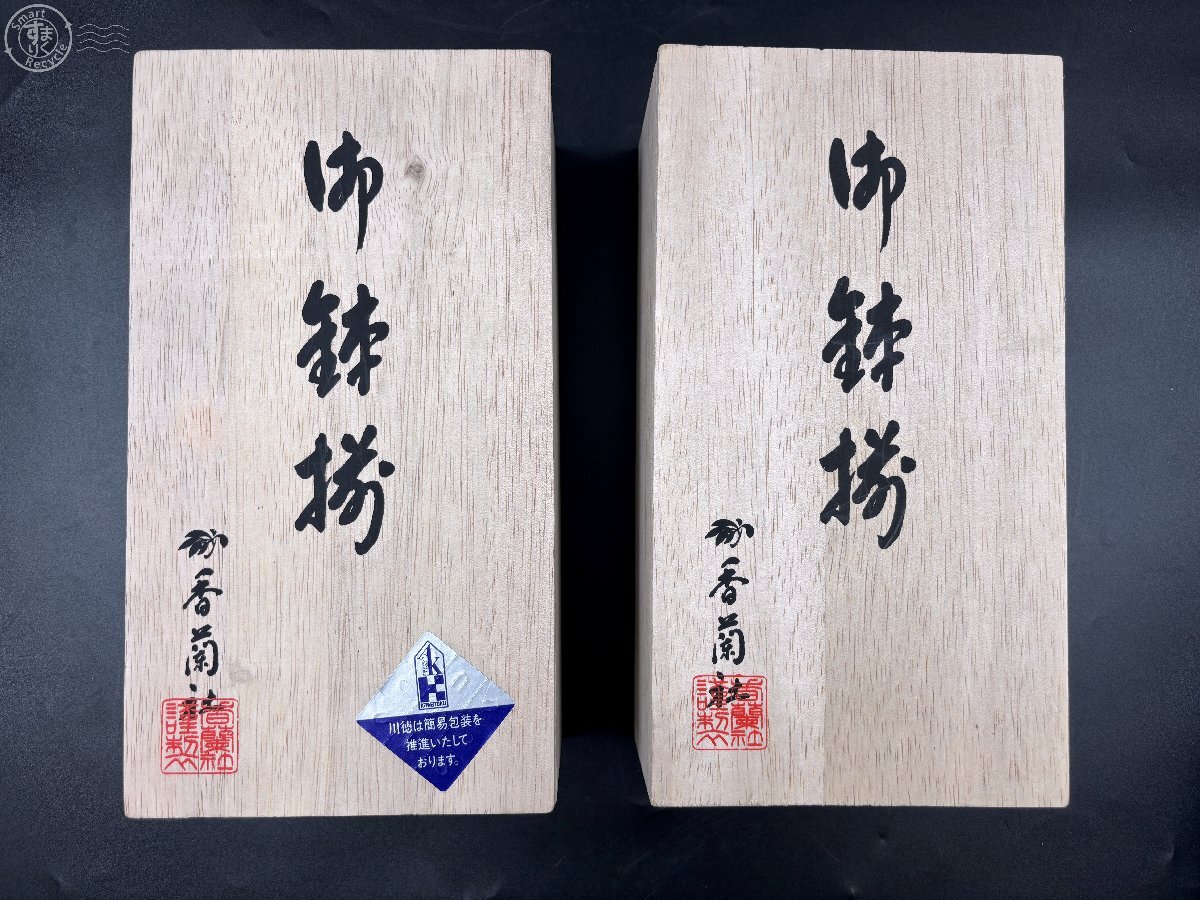 Smart
すまりく
Recycle
御鉢揃
香蘭社
香蘭社謹製
K
KAWATOKU
川徳は簡易包装を
推進いたして
おります。
御鉢揃
香蘭社
香蘭社謹製